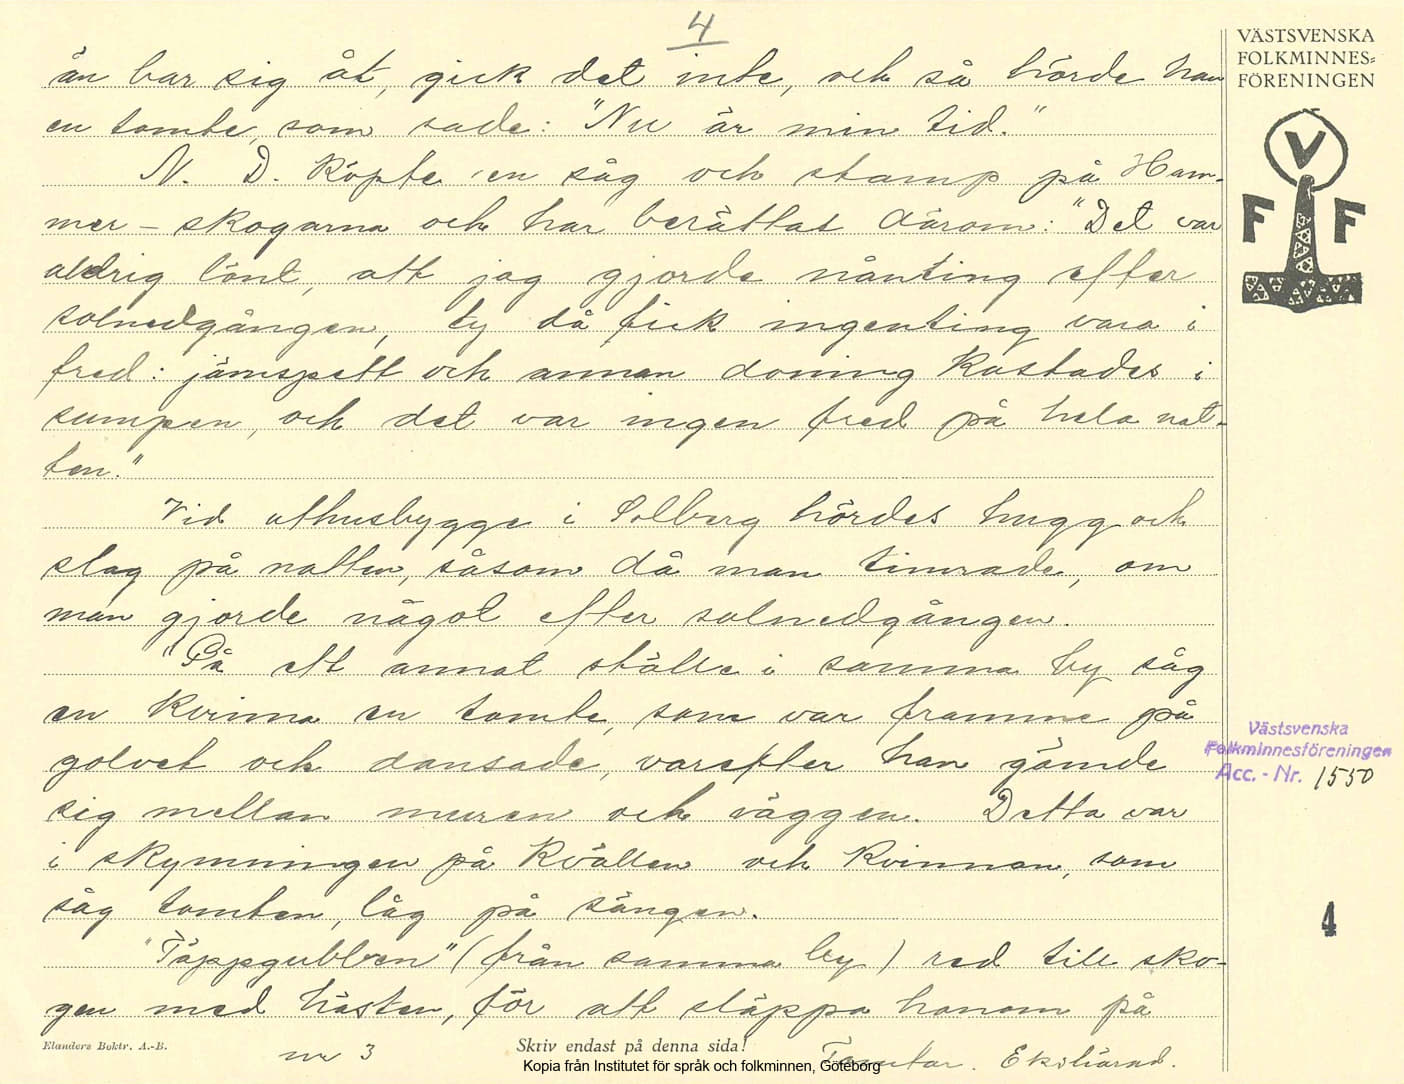 4
än bar sig åt, gick det inte, och så hörde han
en tomte, som sade: "Nu är min tid."
N. D. köpte en såg och stamp på Ham-
mer-skogarna och har berättat därom: "Det var
aldrig lönt, att jag gjorde nånting efter
solnedgången, ty då fick ingenting vara i
fred: järnspett och annan doning kastades i
sumpen, och det var ingen fred på hela nat-
ten."
Vid uthusbygge i Solberg hördes hugg och
slag på natten, såsom då man timrade, om
man gjorde något efter solnedgången.
"På ett annat ställe i samma by såg
en kvinna en tomte, som var framme på
golvet och dansade, varefter han gömde
sig mellan muren och väggen. Detta var
i skymningen på kvällen och kvinnan, som
såg tomten, låg på sängen.
"Täppgubben" (från samma by) red till sko-
gen med hästen, för att släppa honom på
VÄSTSVENSKA
FOLKMINNES=
FÖRENINGEN
V
F F
Västsvenska
Folkminnesföreningen
Acc.-Nr. 1550
4
Elanders Boktr. A.-B.
nr 3
Skriv endast på denna sida!
Tomtar. Ekshärad.
Kopia från Institutet för språk och folkminnen, Göteborg